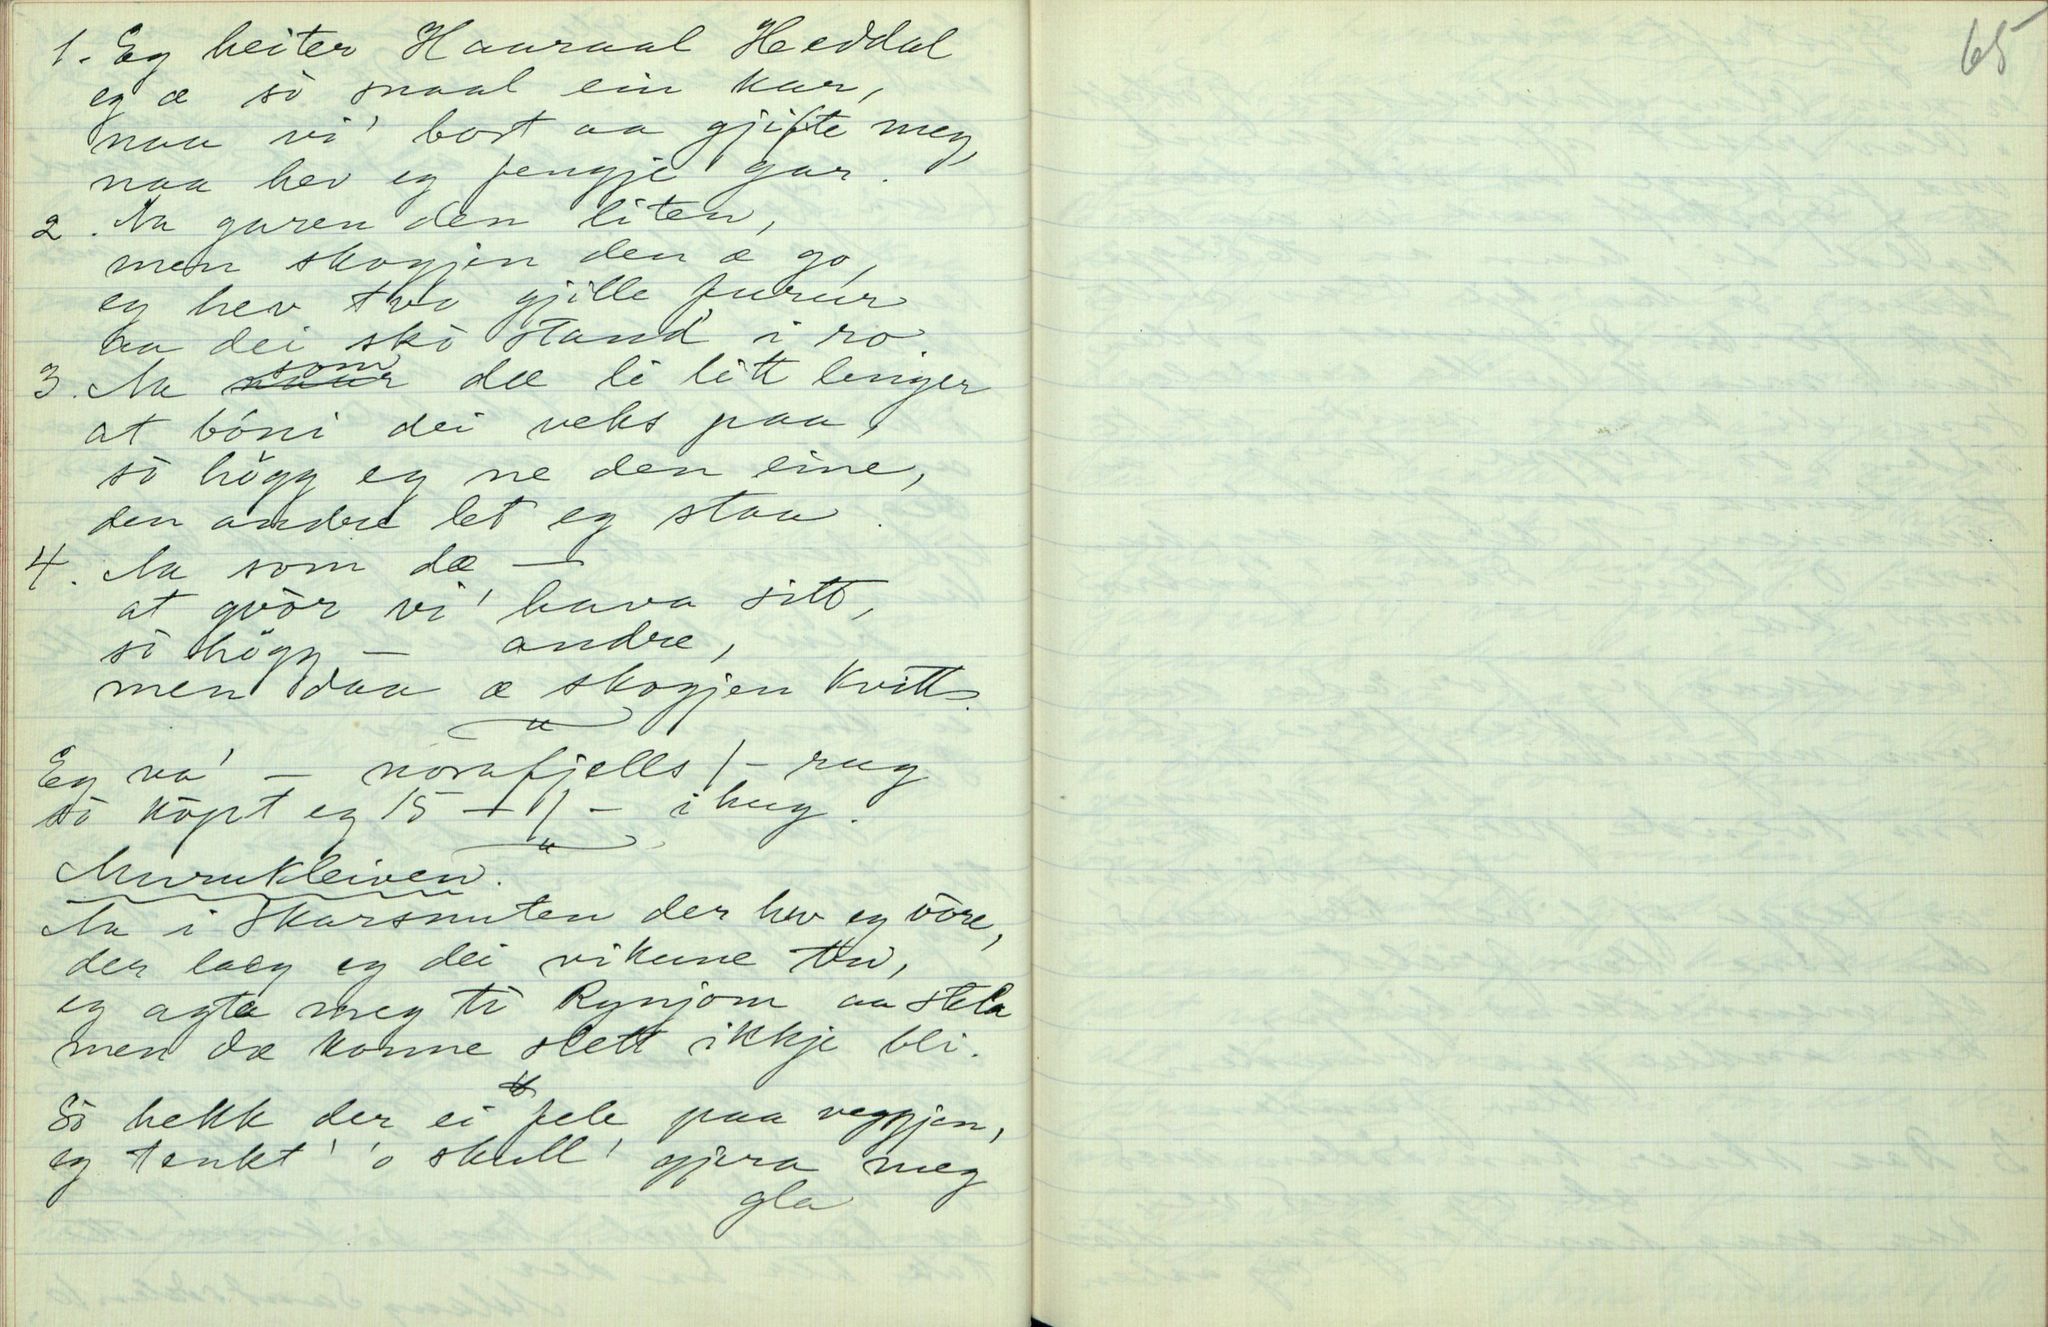 1. Eg heiter Hauraal Heddal
eg æ so snaal ein kar,
naa vi' bort aa gjifte meg,
naa hev eg fengje gar.
2. Aa garen den liten,
men skogjen den æ go,
eg hev tvo gjille furur
aa dei sko stand' i ro
3. Aa som dæ li litt lenger
at bóni dei veks paa,
so högg eg ne den eine,
den andre let eg staa.
4. Aa som dæ —
at qvor vi' hava sitt,
so högg — andre,
men daa æ skogjen kvitt.
Eg va' — norafjells /- rug
so köpt eg 15 - /- i hug.
Murukleiven.
Aa i Skarsnuten der hev eg vöre,
der laag eg dei vikune tri,
eg agta meg ti Rynjom aa stela
men dæ konne slett ikkje bli.
So hekk der ei fele paa veggjen,
eg tenkt' 'o skull' gjera meg
gla
65